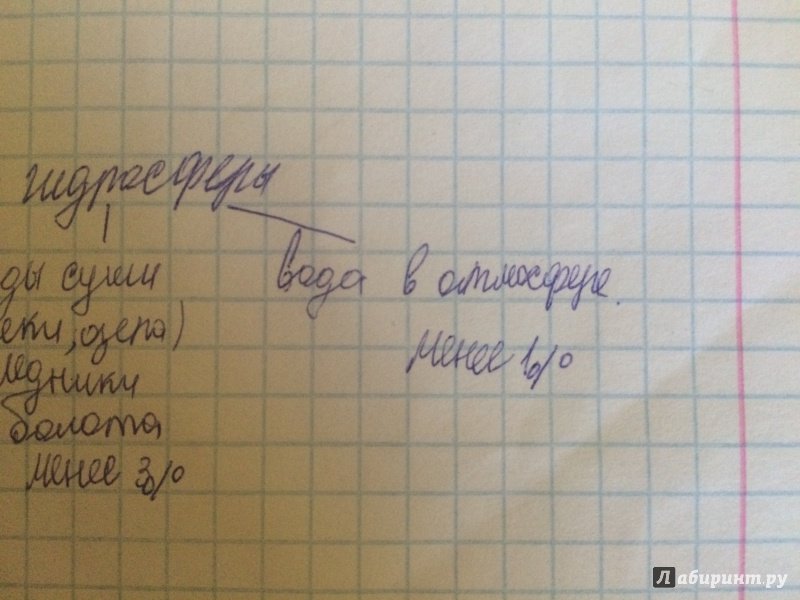 гидросферы
ды суши
еки, озера)
ледники
болота
менее 3%
вода в атмосфере.
менее 1%
Лабиринт.ру